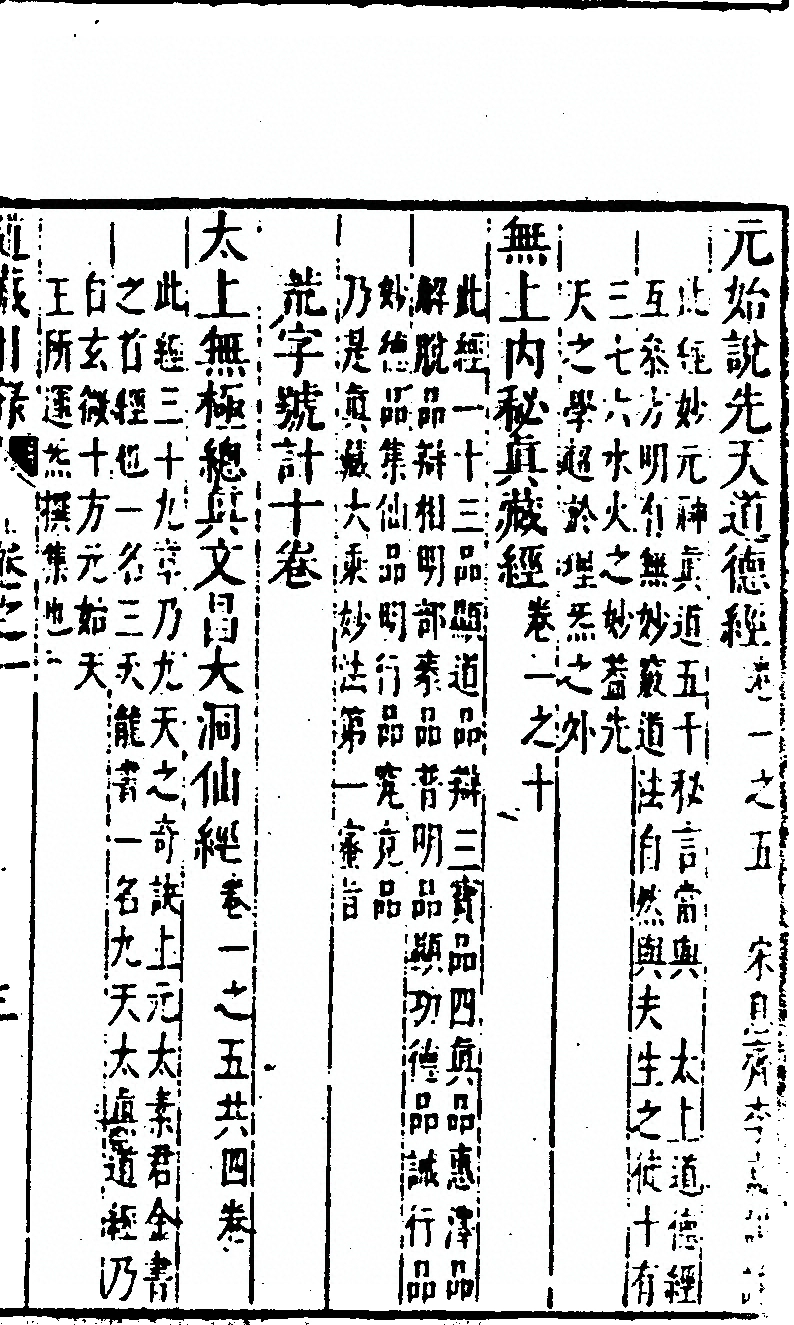 元始說先天道德經卷一之五　宋息齋李嘉謀註
此經妙元神眞近五千秘言常與　太上道德經
互叅方明有無妙竅道法自然與夫生之徒十有
三七六水火之妙葢先
天之學超於理炁之外
無上內秘眞藏經卷一之十
此經一十三品顯道品辯三寶品四眞品惠澤品
解脫品辯相明部泰品普明品顯功德品誡行品
妙德品集仙品明行品究竟品
乃是眞藏大乘妙法第一蜜旨
荒字號計十卷
太上無極總眞文昌大洞仙經卷一之五共四卷
此經三十九章乃九天之奇訣上元太素君金書
之首經也一名三天龍書一名九天太眞道經乃
自玄微十方元始天
王所運炁撰集也
道藏目錄 卷之一 三